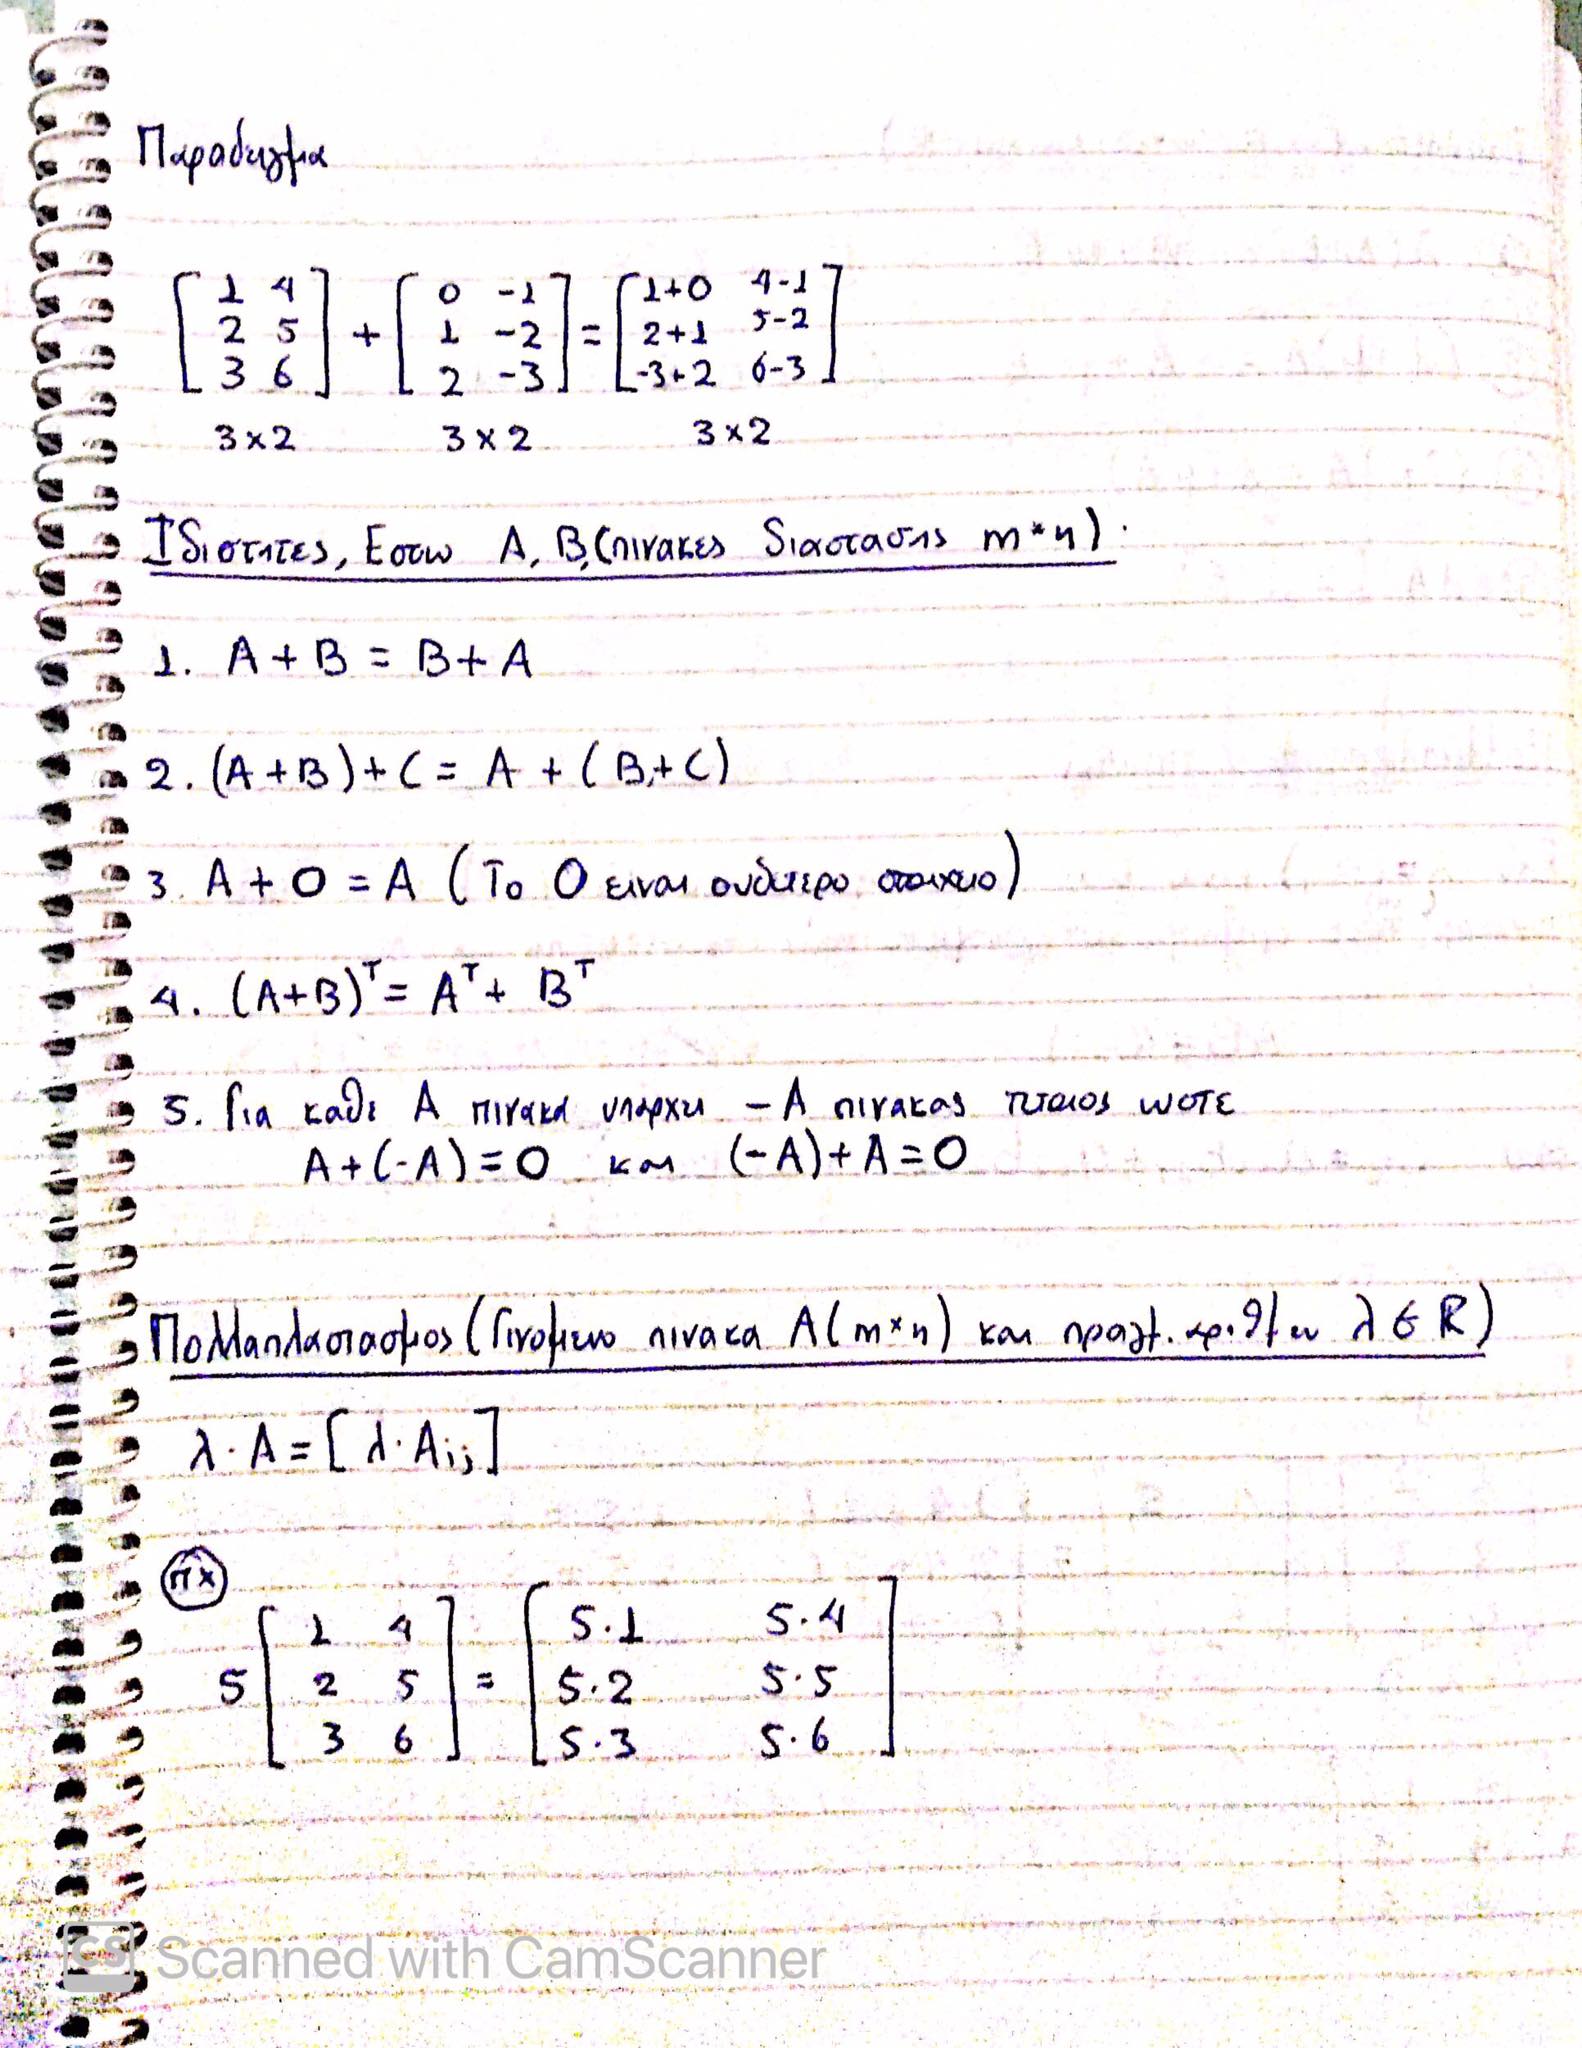 Παραδειγμα
[1 4; 2 5; 3 6] + [0 -1; 1 -2; 2 -3] = [1+0 4-1; 2+1 5-2; -3+2 6-3]
3x2 3x2 3x2
Ιδιοτητες, Εστω A, B, (πινακες διαστασης m*n).
1. A + B = B + A
2. (A+B)+C = A + (B+C)
3. A + 0 = A (Το 0 ειναι ουδετερο στοιχειο)
4. (A+B)ᵀ = Aᵀ + Bᵀ
5. Για καθε A πινακα υπαρχει -A πινακας τετοιος ωστε
A+(-A)=0 και (-A)+A=0
Πολλαπλασιασμος (Γινομενο πινακα A(m*n) και πραγμ. αριθμου λ ∈ R)
λ·A = [λ·Aij]
πχ
5 [1 4; 2 5; 3 6] = [5·1 5·4; 5·2 5·5; 5·3 5·6]
CS Scanned with CamScanner